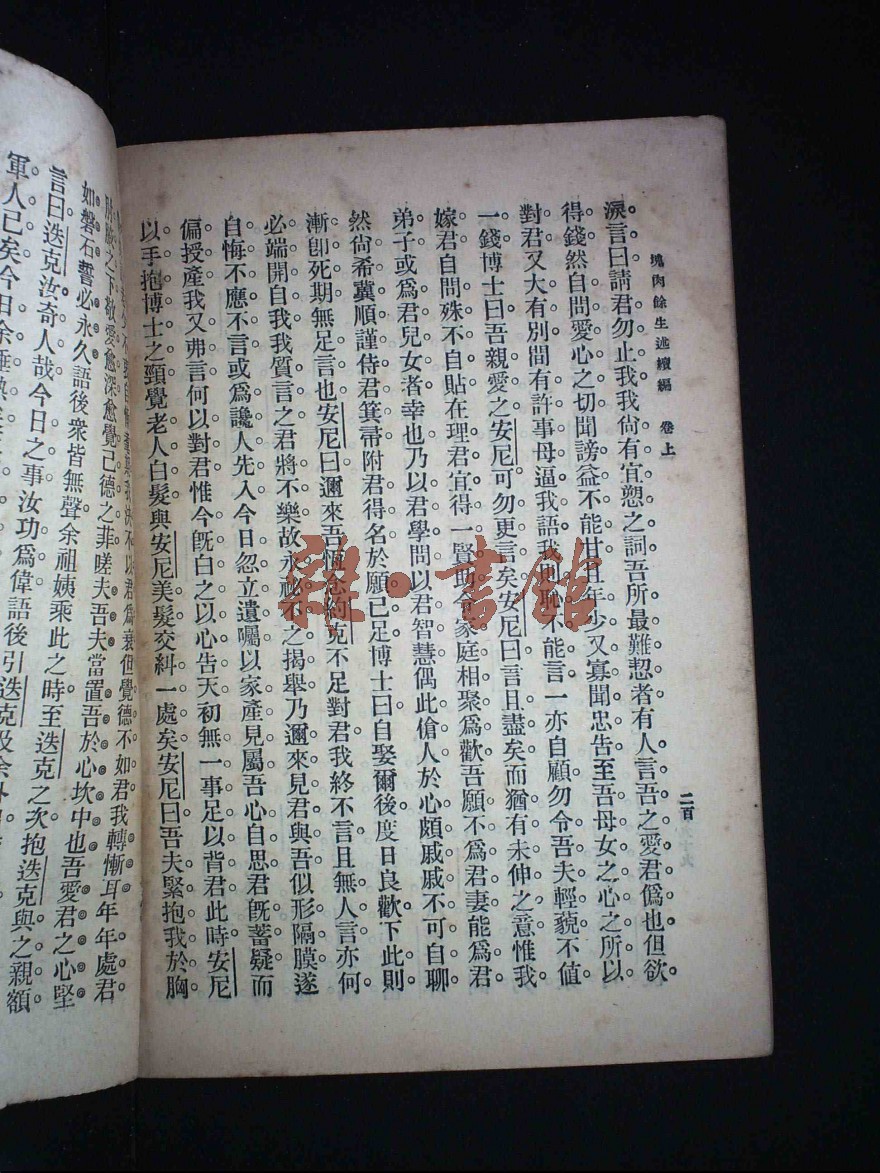 塊肉餘生述續編 卷上
二百
淚。言曰請君勿止我。我尙有宜愬之詞。吾所最難恝者。有人言吾之愛君僞也。但欲
得錢。然自問愛心之切。聞謗益不能甘。且年少又寡聞忠告。至吾母女之心之所以
對君。又大有別。間有許事。母逼我語。我則恥不能言。一亦自顧。勿令吾夫輕藐不值
一錢。博士曰。吾親愛之安尼。可勿更言矣。安尼曰。言且盡矣。而猶有未伸之意。惟我
嫁君。自問殊不自貼。在理君宜得一賢助。令家庭相聚爲歡。吾願不爲君妻。能爲君
弟子。或爲君兒女者幸也。乃以君學問。以君智慧。偶此傖人。於心頗戚戚不可自聊。
然尙希冀順謹侍君箕帚。附君得名。於願已足。博士曰。自娶爾後。度日良歡。下此則
漸卽死期。無足言也。安尼曰。邇來吾恆念約克不足對君。我終不言。且無人言。亦何
必端開自我。我質言之。君將不樂。故永祕不之揭舉。乃邇來見君與吾似形隔膜。遂
自悔不應不言。或爲讒人先入。今日忽立遺囑。以家產見屬。吾心自思。君旣蓄疑。而
偏授產我。又弗言。何以對君。惟今旣白之。以心告天。初無一事足以背君。此時安尼
以手抱博士之頸。覺老人白髮與安尼美髮交糾一處矣。安尼曰。吾夫緊抱我於胸
不以君爲衰。但覺德不如君。我轉慚耳。年年處君
之下。敬愛愈深。愈覺己德之菲。嗟夫吾夫。當置吾於心坎中也。吾愛君之心。堅
如磐石。誓必永久。語後衆皆無聲。余祖姨乘此之時。至迭克之次。抱迭克與之親額
言曰。迭克汝奇人哉。今日之事。汝功爲偉。語後引迭克及余
軍人已矣。今日余